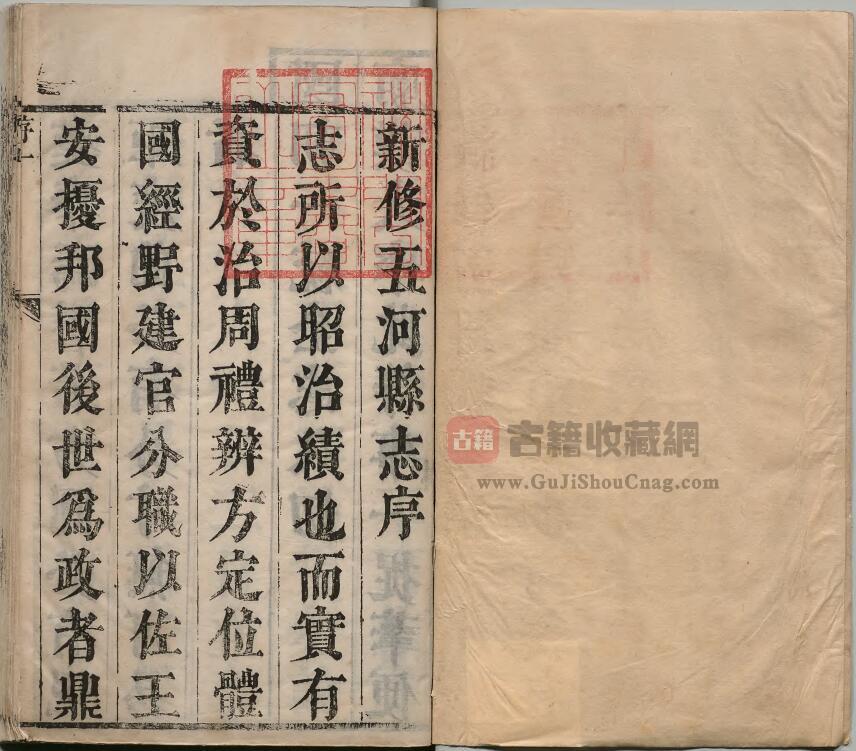 新修五河縣志序
志所以昭治績也而實有
資於治周禮辨方定位體
國經野建官分職以佐王
安擾邦國後世爲政者鼎
古籍
古籍收藏網
www.GuJiShouCnag.com